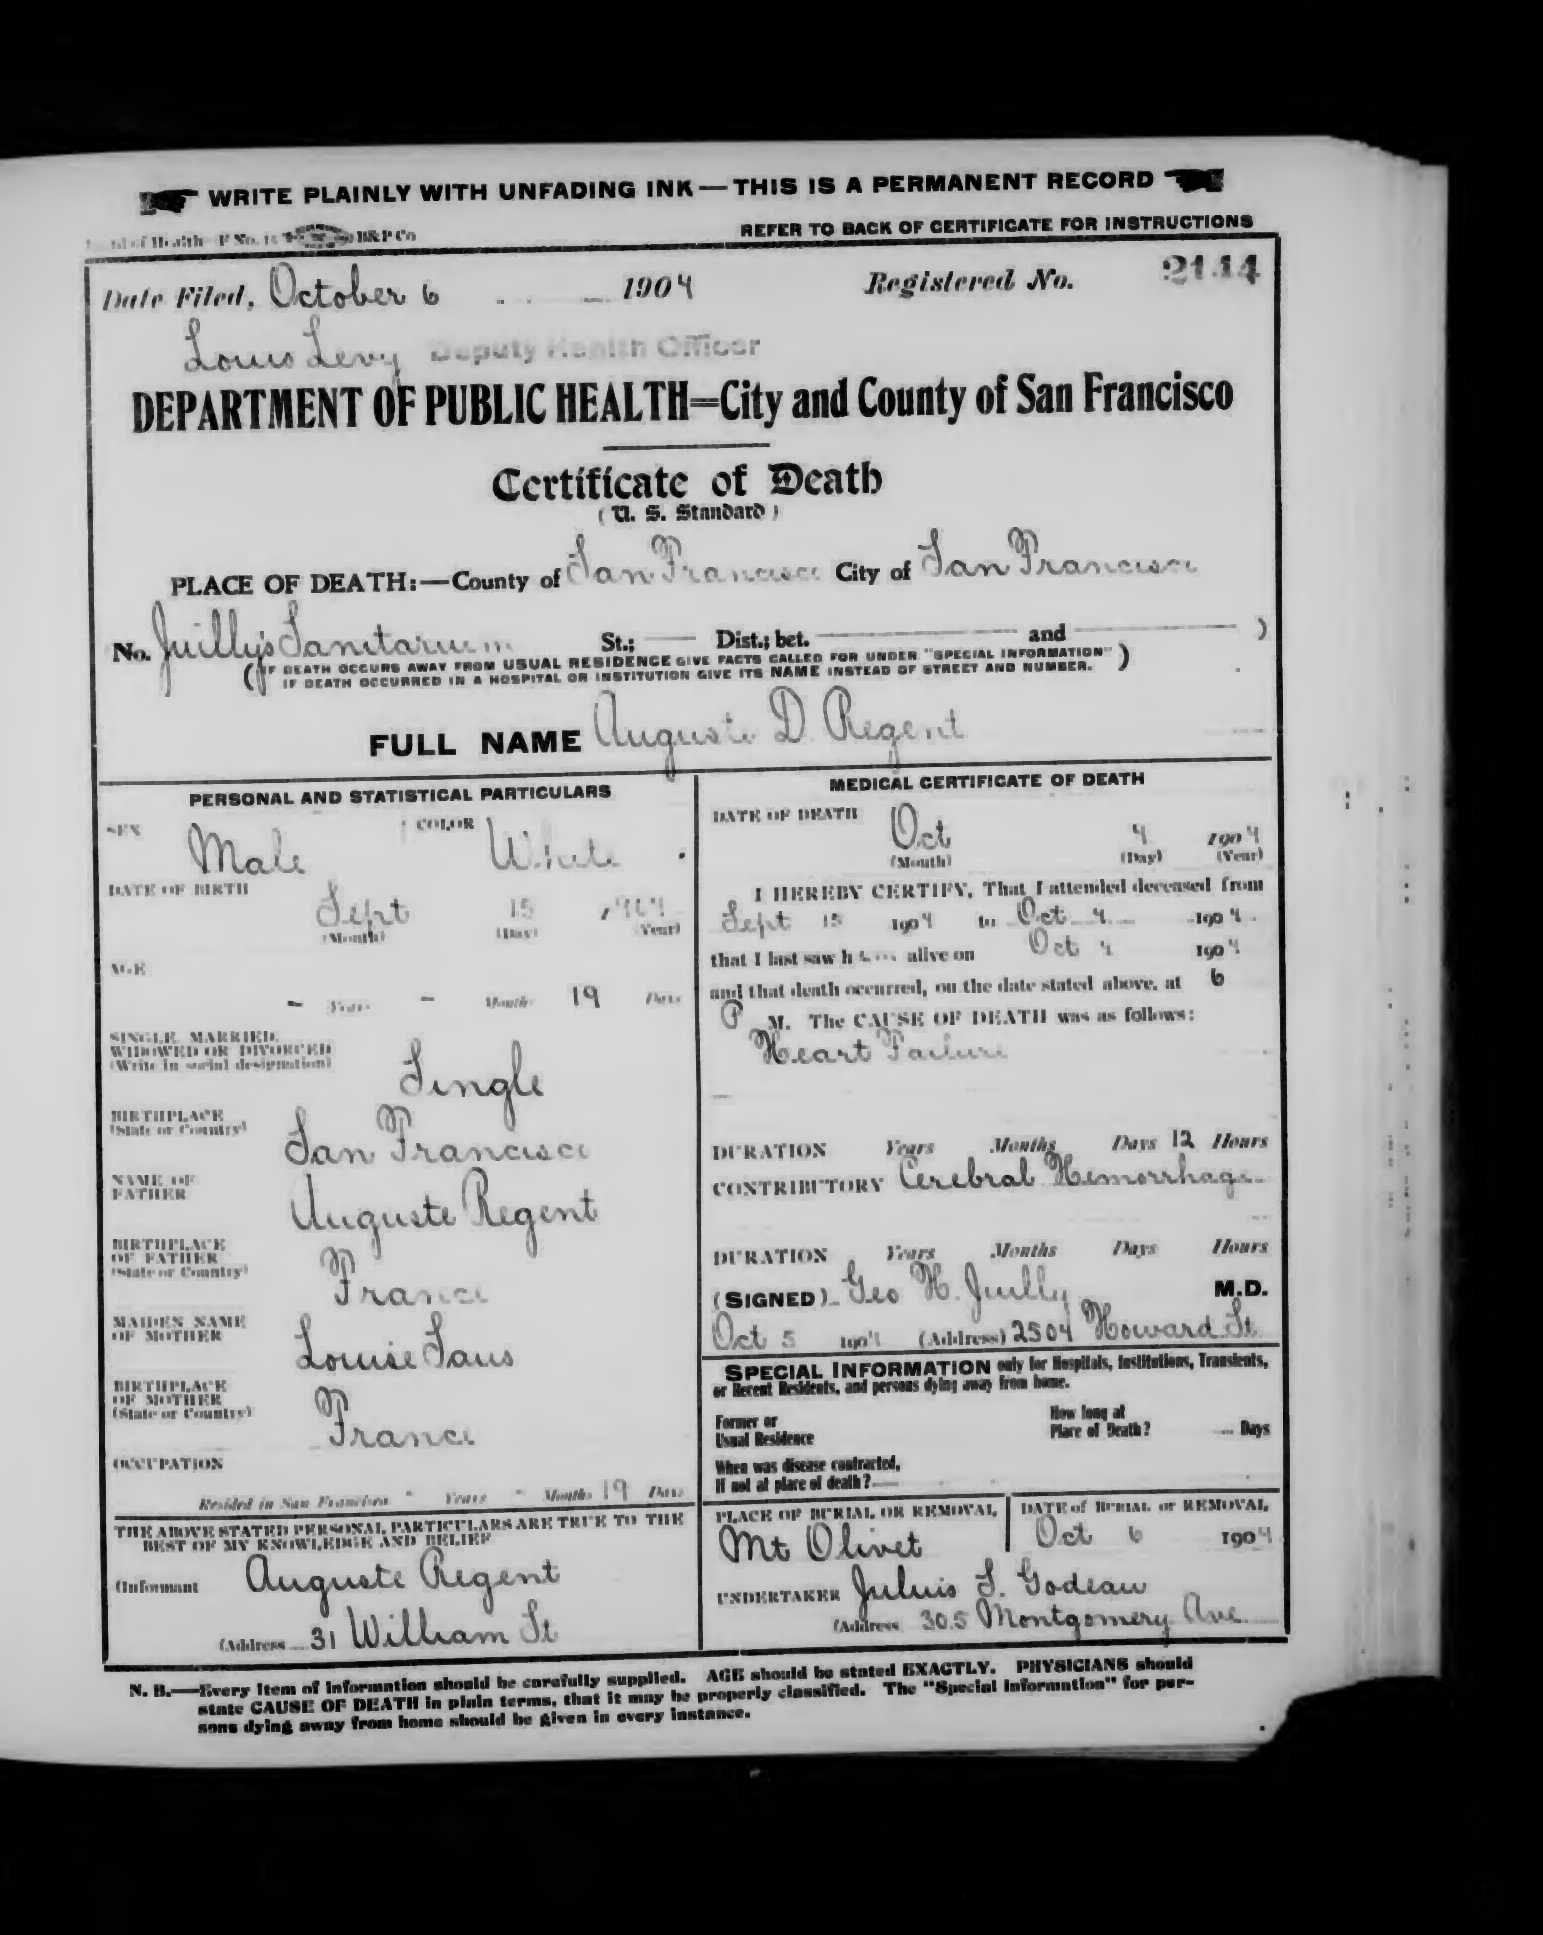 WRITE PLAINLY WITH UNFADING INK — THIS IS A PERMANENT RECORD
of Health F No. B&P Co
REFER TO BACK OF CERTIFICATE FOR INSTRUCTIONS
Date Filed, October 6 1904 Registered No. 2144
Louis Levy Deputy Health Officer
DEPARTMENT OF PUBLIC HEALTH=City and County of San Francisco
Certificate of Death
( U. S. Standard )
PLACE OF DEATH:—County of San Francisco City of San Francisco
No. Juilly's Sanitarium St.; Dist.; bet. and )
( IF DEATH OCCURS AWAY FROM USUAL RESIDENCE GIVE FACTS CALLED FOR UNDER "SPECIAL INFORMATION" )
IF DEATH OCCURRED IN A HOSPITAL OR INSTITUTION GIVE ITS NAME INSTEAD OF STREET AND NUMBER.
FULL NAME Auguste D. Regent
PERSONAL AND STATISTICAL PARTICULARS
SEX Male COLOR White
DATE OF BIRTH
Sept 15 1904
(Month) (Day) (Year)
AGE
- Years - Months 19 Days
SINGLE, MARRIED,
WIDOWED OR DIVORCED
(Write in social designation)
Single
BIRTHPLACE
(State or Country)
San Francisco
NAME OF
FATHER
Auguste Regent
BIRTHPLACE
OF FATHER
(State or Country)
France
MAIDEN NAME
OF MOTHER
Louise Saus
BIRTHPLACE
OF MOTHER
(State or Country)
France
OCCUPATION
Resided in San Francisco - Years - Months 19 Days
THE ABOVE STATED PERSONAL PARTICULARS ARE TRUE TO THE
BEST OF MY KNOWLEDGE AND BELIEF
(Informant Auguste Regent
(Address 31 William St
MEDICAL CERTIFICATE OF DEATH
DATE OF DEATH
Oct 4 1904
(Month) (Day) (Year)
I HEREBY CERTIFY, That I attended deceased from
Sept 15 1904 to Oct 4 1904
that I last saw h im alive on Oct 4 1904
and that death occurred, on the date stated above, at 6
P M. The CAUSE OF DEATH was as follows:
Heart Failure
DURATION Years Months Days 12 Hours
CONTRIBUTORY Cerebral Hemorrhage
DURATION Years Months Days Hours
(SIGNED) Geo H. Juilly M.D.
Oct 5 1904 (Address) 2504 Howard St
SPECIAL INFORMATION only for Hospitals, Institutions, Transients,
or Recent Residents, and persons dying away from home.
Former or
Usual Residence
How long at
Place of Death? Days
When was disease contracted,
If not at place of death?
PLACE OF BURIAL OR REMOVAL
Mt Olivet
DATE of BURIAL or REMOVAL
Oct 6 1904
UNDERTAKER Julius S. Godeau
(Address 305 Montgomery Ave
N. B.—Every item of information should be carefully supplied. AGE should be stated EXACTLY. PHYSICIANS should
state CAUSE OF DEATH in plain terms, that it may be properly classified. The "Special Information" for per-
sons dying away from home should be given in every instance.